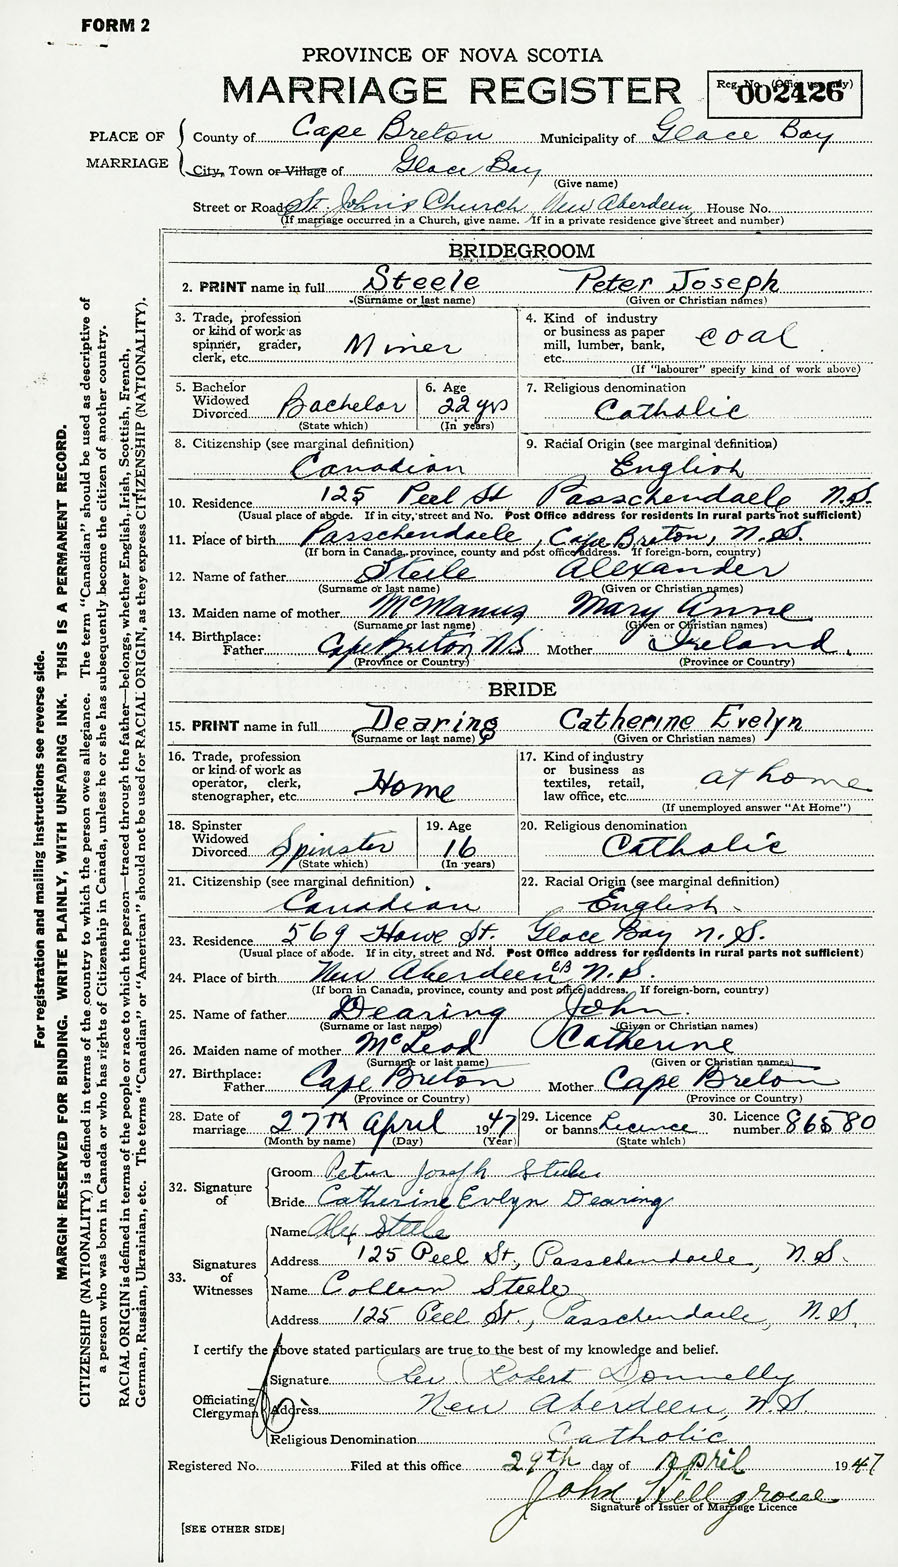 FORM 2
PROVINCE OF NOVA SCOTIA
MARRIAGE REGISTER
Reg. No. (Office use only)
002426
PLACE OF MARRIAGE
County of Cape Breton Municipality of Glace Bay
City, Town or Village of Glace Bay
(Give name)
Street or Road St. John's Church, New Aberdeen, House No.
(If marriage occurred in a Church, give name. If in a private residence give street and number)
BRIDEGROOM
2. PRINT name in full Steele Peter Joseph
(Surname or last name) (Given or Christian names)
3. Trade, profession or kind of work as spinner, grader, clerk, etc. Miner
4. Kind of industry or business as paper mill, lumber, bank, etc. coal
(If "labourer" specify kind of work above)
5. Bachelor Widowed Divorced Bachelor
(State which)
6. Age 22 yrs
(In years)
7. Religious denomination Catholic
8. Citizenship (see marginal definition) Canadian
9. Racial Origin (see marginal definition) English
10. Residence 125 Peel St Passchendaele N.S.
(Usual place of abode. If in city, street and No. Post Office address for residents in rural parts not sufficient)
11. Place of birth Passchendaele, Cape Breton, N.S.
(If born in Canada, province, county and post office address. If foreign-born, country)
12. Name of father Steele Alexander
(Surname or last name) (Given or Christian names)
13. Maiden name of mother McManus Mary Anne
(Surname or last name) (Given or Christian names)
14. Birthplace: Father Cape Breton N.S Mother Ireland.
(Province or Country) (Province or Country)
BRIDE
15. PRINT name in full Dearing Catherine Evelyn
(Surname or last name) (Given or Christian names)
16. Trade, profession or kind of work as operator, clerk, stenographer, etc. Home
17. Kind of industry or business as textiles, retail, law office, etc. at home
(If unemployed answer "At Home")
18. Spinster Widowed Divorced Spinster
(State which)
19. Age 16
(In years)
20. Religious denomination Catholic
21. Citizenship (see marginal definition) Canadian
22. Racial Origin (see marginal definition) English.
23. Residence 569 Howe St. Glace Bay N.S.
(Usual place of abode. If in city, street and No. Post Office address for residents in rural parts not sufficient)
24. Place of birth New Aberdeen CB N.S.
(If born in Canada, province, county and post office address. If foreign-born, country)
25. Name of father Dearing John.
(Surname or last name) (Given or Christian names)
26. Maiden name of mother McLeod Catherine
(Surname or last name) (Given or Christian names)
27. Birthplace: Father Cape Breton Mother Cape Breton
(Province or Country) (Province or Country)
28. Date of marriage 27th April 1947
(Month by name) (Day) (Year)
29. Licence or banns Licence
(State which)
30. Licence number 86580
32. Signature of
Groom Peter Joseph Steele
Bride Catherine Evlyn Dearing
33. Signatures of Witnesses
Name Alex Steele
Address 125 Peel St., Passchendaele, N.S.
Name Colleen Steele
Address 125 Peel St., Passchendaele, N.S.
I certify the above stated particulars are true to the best of my knowledge and belief.
Officiating Clergyman
Signature Rev Robert Donnelly
Address New Aberdeen, N.S.
Religious Denomination Catholic
Registered No. Filed at this office 29th day of April 1947
John Hillgrove
Signature of Issuer of Marriage Licence
[SEE OTHER SIDE]
For registration and mailing instructions see reverse side.
MARGIN RESERVED FOR BINDING. WRITE PLAINLY, WITH UNFADING INK. THIS IS A PERMANENT RECORD.
CITIZENSHIP (NATIONALITY) is defined in terms of the country to which the person owes allegiance. The term "Canadian" should be used as descriptive of
a person who was born in Canada or who has rights of Citizenship in Canada, unless he or she has subsequently become the citizen of another country.
RACIAL ORIGIN is defined in terms of the people or race to which the person—traced through the father—belongs, whether English, Irish, Scottish, French,
German, Russian, Ukrainian, etc. The terms "Canadian" or "American" should not be used for RACIAL ORIGIN, as they express CITIZENSHIP (NATIONALITY).